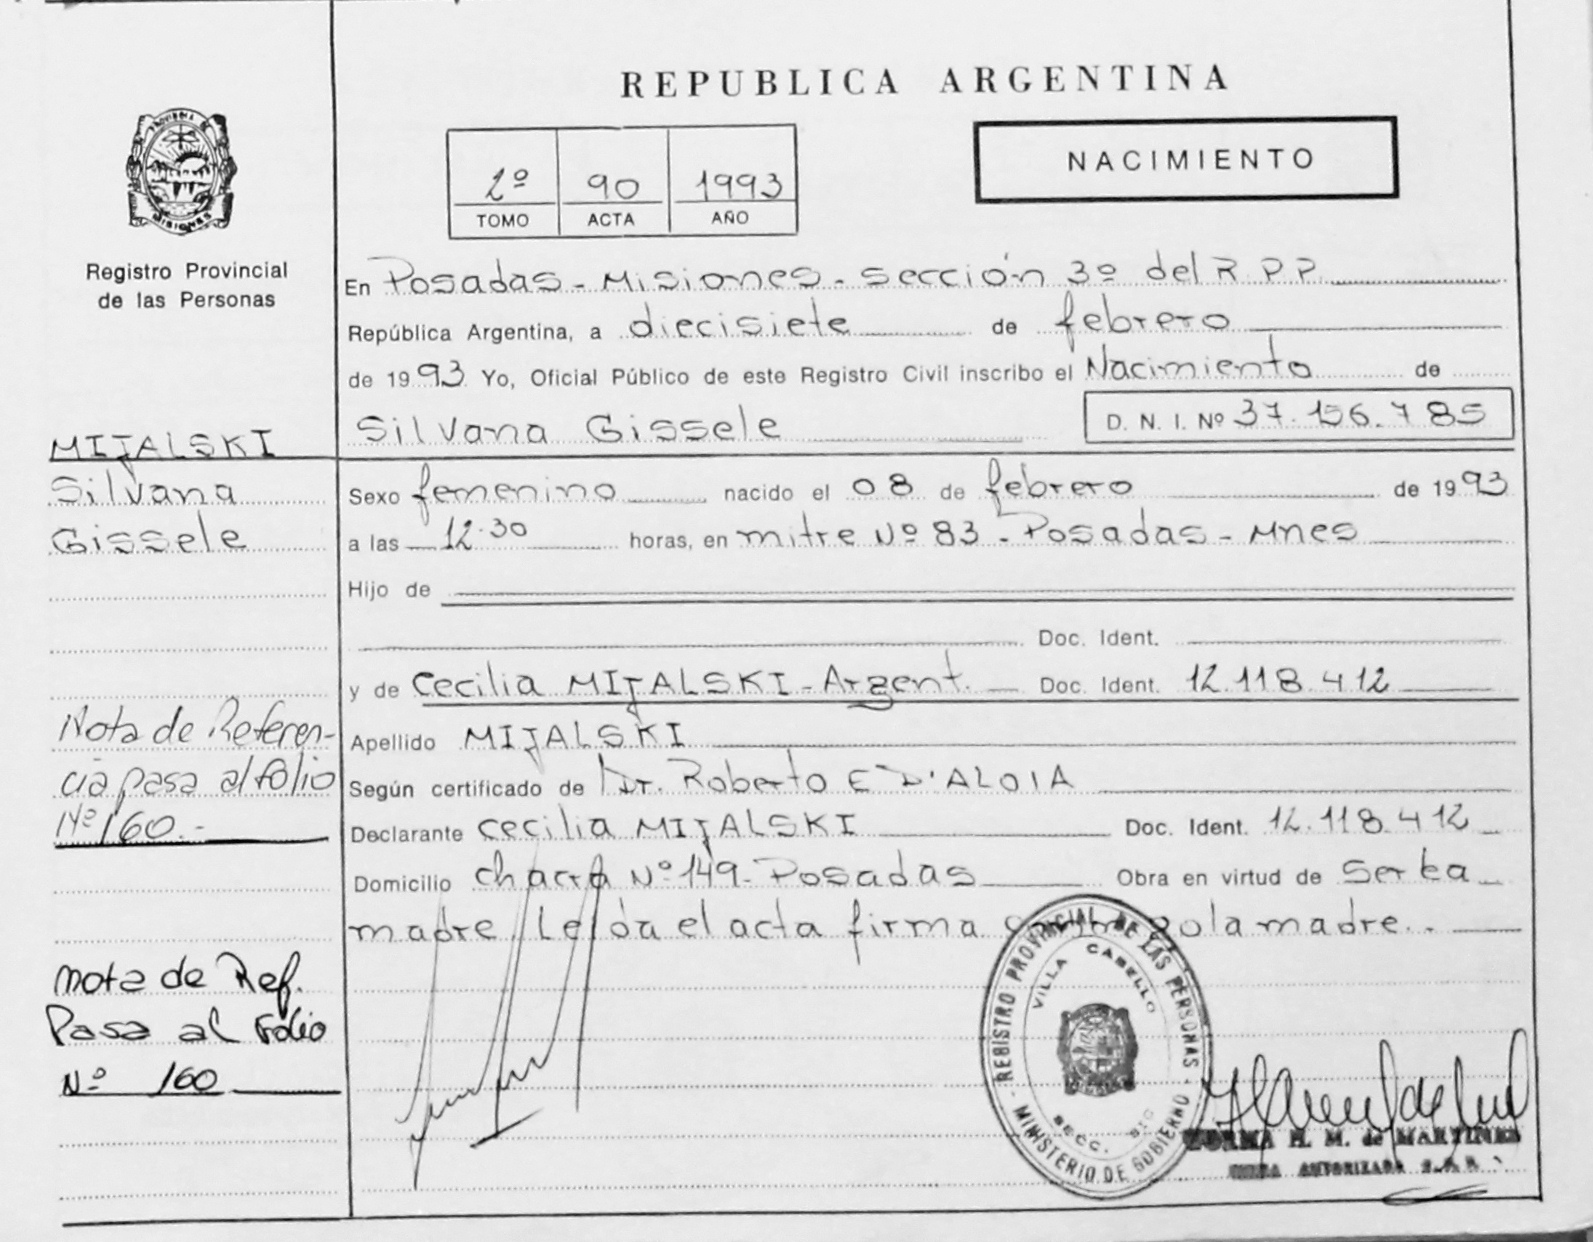 REPUBLICA ARGENTINA
PROVINCIA DE
MISIONES
Registro Provincial
de las Personas
2º 90 1993
TOMO ACTA AÑO
NACIMIENTO
En Posadas - Misiones - sección 3º del R.P.P.
República Argentina, a diecisiete de febrero
de 1993 Yo, Oficial Público de este Registro Civil inscribo el Nacimiento de
Silvana Gissele
D. N. I. Nº 37.156.785
MIJALSKI
Silvana
Gissele
Sexo femenino nacido el 08 de febrero de 1993
a las 12.30 horas, en mitre Nº 83 - Posadas - Mnes
Hijo de
Doc. Ident.
y de Cecilia MIJALSKI - Argent. Doc. Ident. 12.118.412
Nota de Referen-
cia pasa al folio
Nº 160.-
Apellido MIJALSKI
Según certificado de Dr. Roberto E D'ALOIA
Declarante Cecilia MIJALSKI Doc. Ident. 12.118.412
Domicilio chacra Nº 149 - Posadas Obra en virtud de Ser la
madre. Leída el acta firma la madre.-
nota de Ref.
Pasa al Folio
Nº 160
REGISTRO PROVINCIAL DE LAS PERSONAS - MINISTERIO DE GOBIERNO -
VILLA CABELLO
SECC.
NORMA H. M. de MARTINES
FIRMA AUTORIZADA